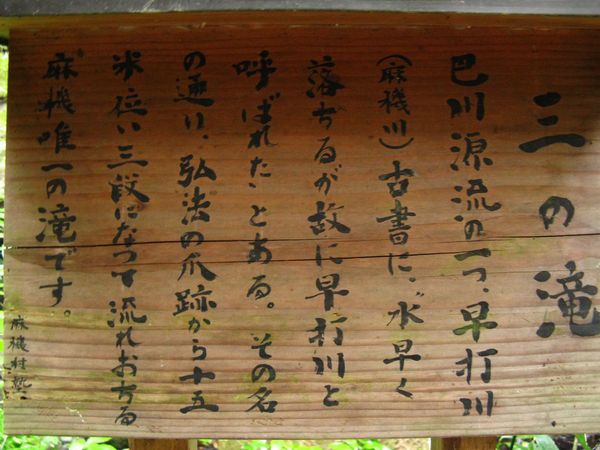 三の滝
巴川源流の一つ、早打川
(麻機川)古書に、"水早く
落ちるが故に早打川と
呼ばれた"とある。その名
の通り、弘法の爪跡から十五
米位い三段になって流れおちる
麻機唯一の滝です。
麻機村塾